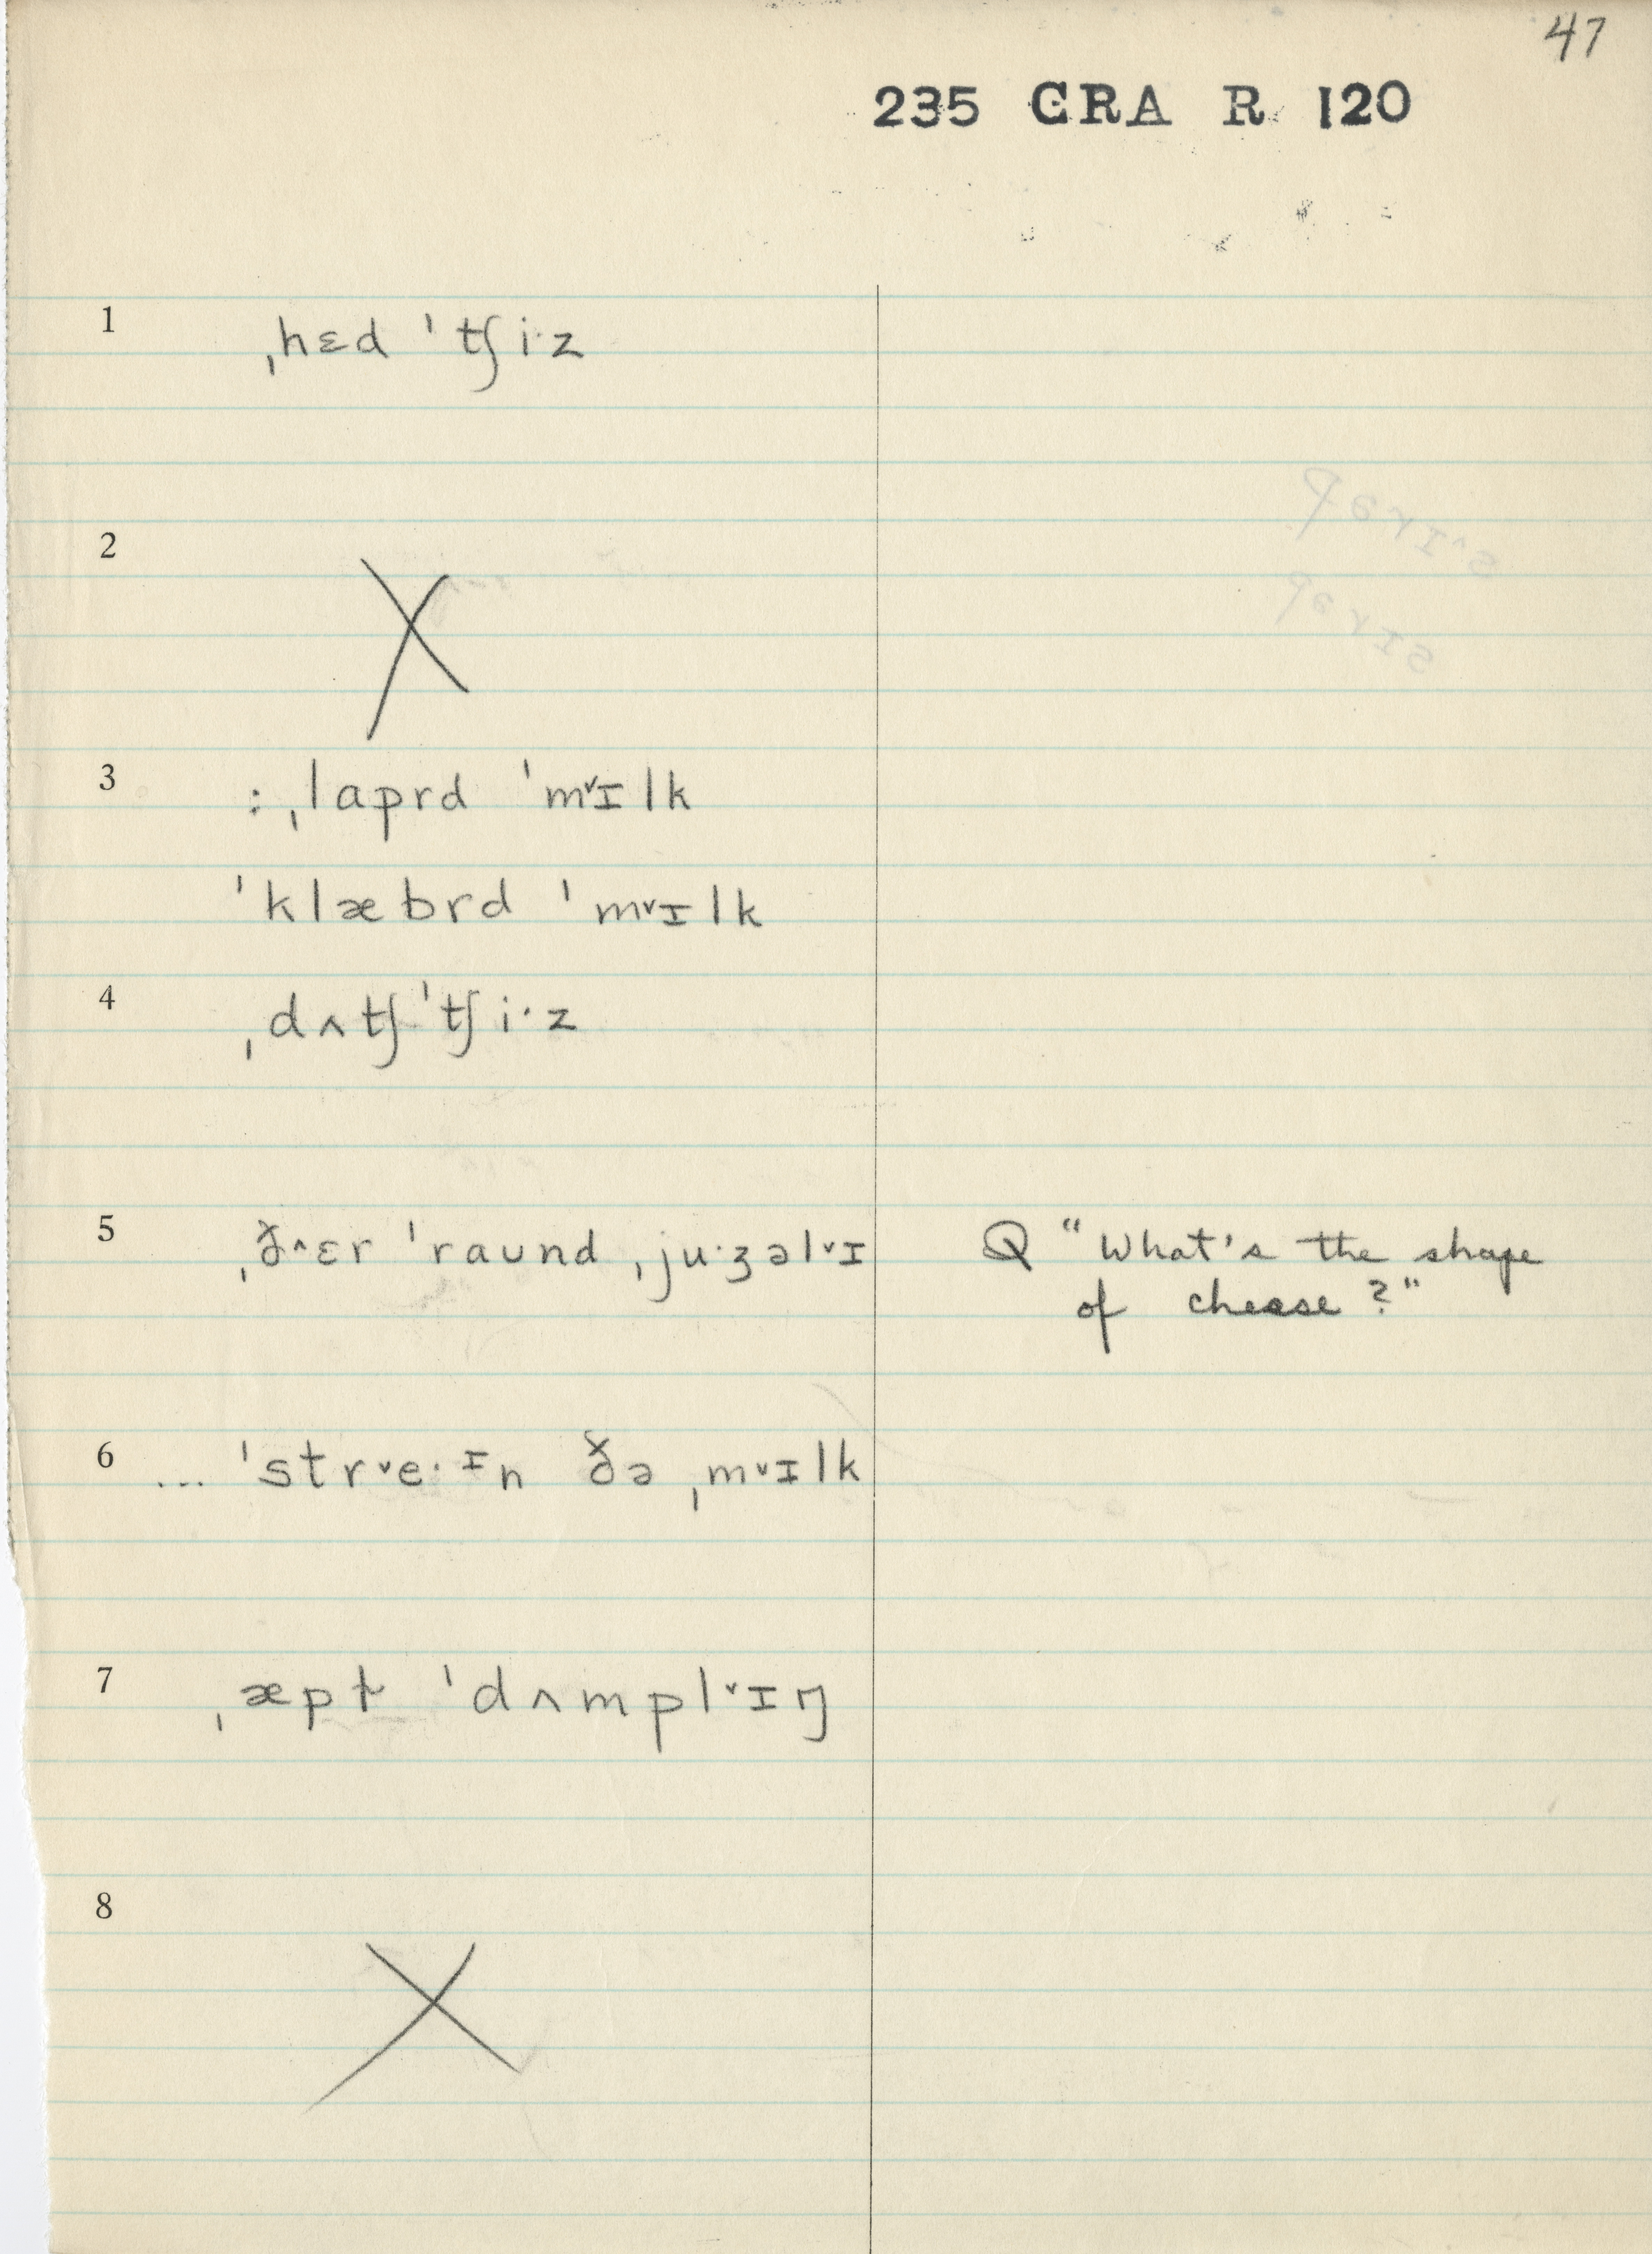 47
235 GRA R 120
1 ˌhɛd ˈtʃi·z
2 X
3 : ˌlaprd ˈm˅ɪlk
ˈklæbrd ˈm˅ɪlk
4 ˌdʌtʃ ˈtʃi·z
5 ˌð˄ɛr ˈraʊnd ˌju·ʒəl˅ɪ Q "What's the shape
of cheese?"
6 ... ˈstr˅e·ɪn ðə ˌm˅ɪlk
7 ˌæpɫ ˈdʌmpl˅ɪŋ
8 X